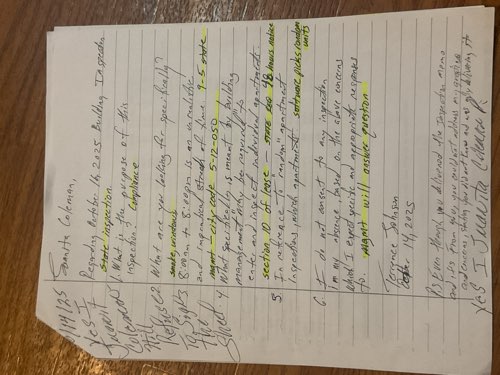 Juanita Coleman,
Regarding October 16, 2025 Building Inspection
State inspection.
1. What is the purpose of this
inspection? Compliance
2. What are you looking for specifically?
smoke, windows
3. 8:00am to 8:00pm is an unrealistic
and impractical stretch of time 9-5 state
mgmt - city code 5-12-050
4. What specifically is meant by "building
management may be required to
enter and inspect individual apartments.
section 10 of lease - state see 48 hours notice
5. In reference to "random" apartment
inspections, which apartment software picks random
units
6. I do not consent to any inspection
in my absence, based on the above concerns
which I expect you to give me appropriate responses
to. Mgmt will answer question
Terrence Johnson
October 14, 2025
Ps Even though you delivered the inspector memo
and it's from you, you could not address my questions
and concerns stating you did not know and was only delivering it
Yes I Juanita Coleman
10/14/25
Yes I
Juanita
Coleman
will
Refuse
To Sign
The
Sheet